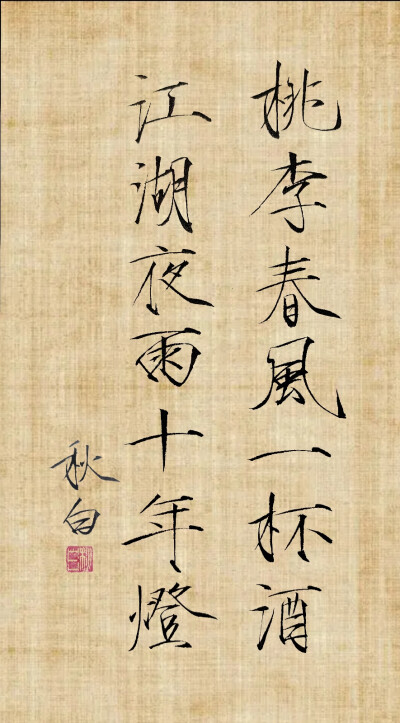 桃李春風一杯酒
江湖夜雨十年燈
秋白